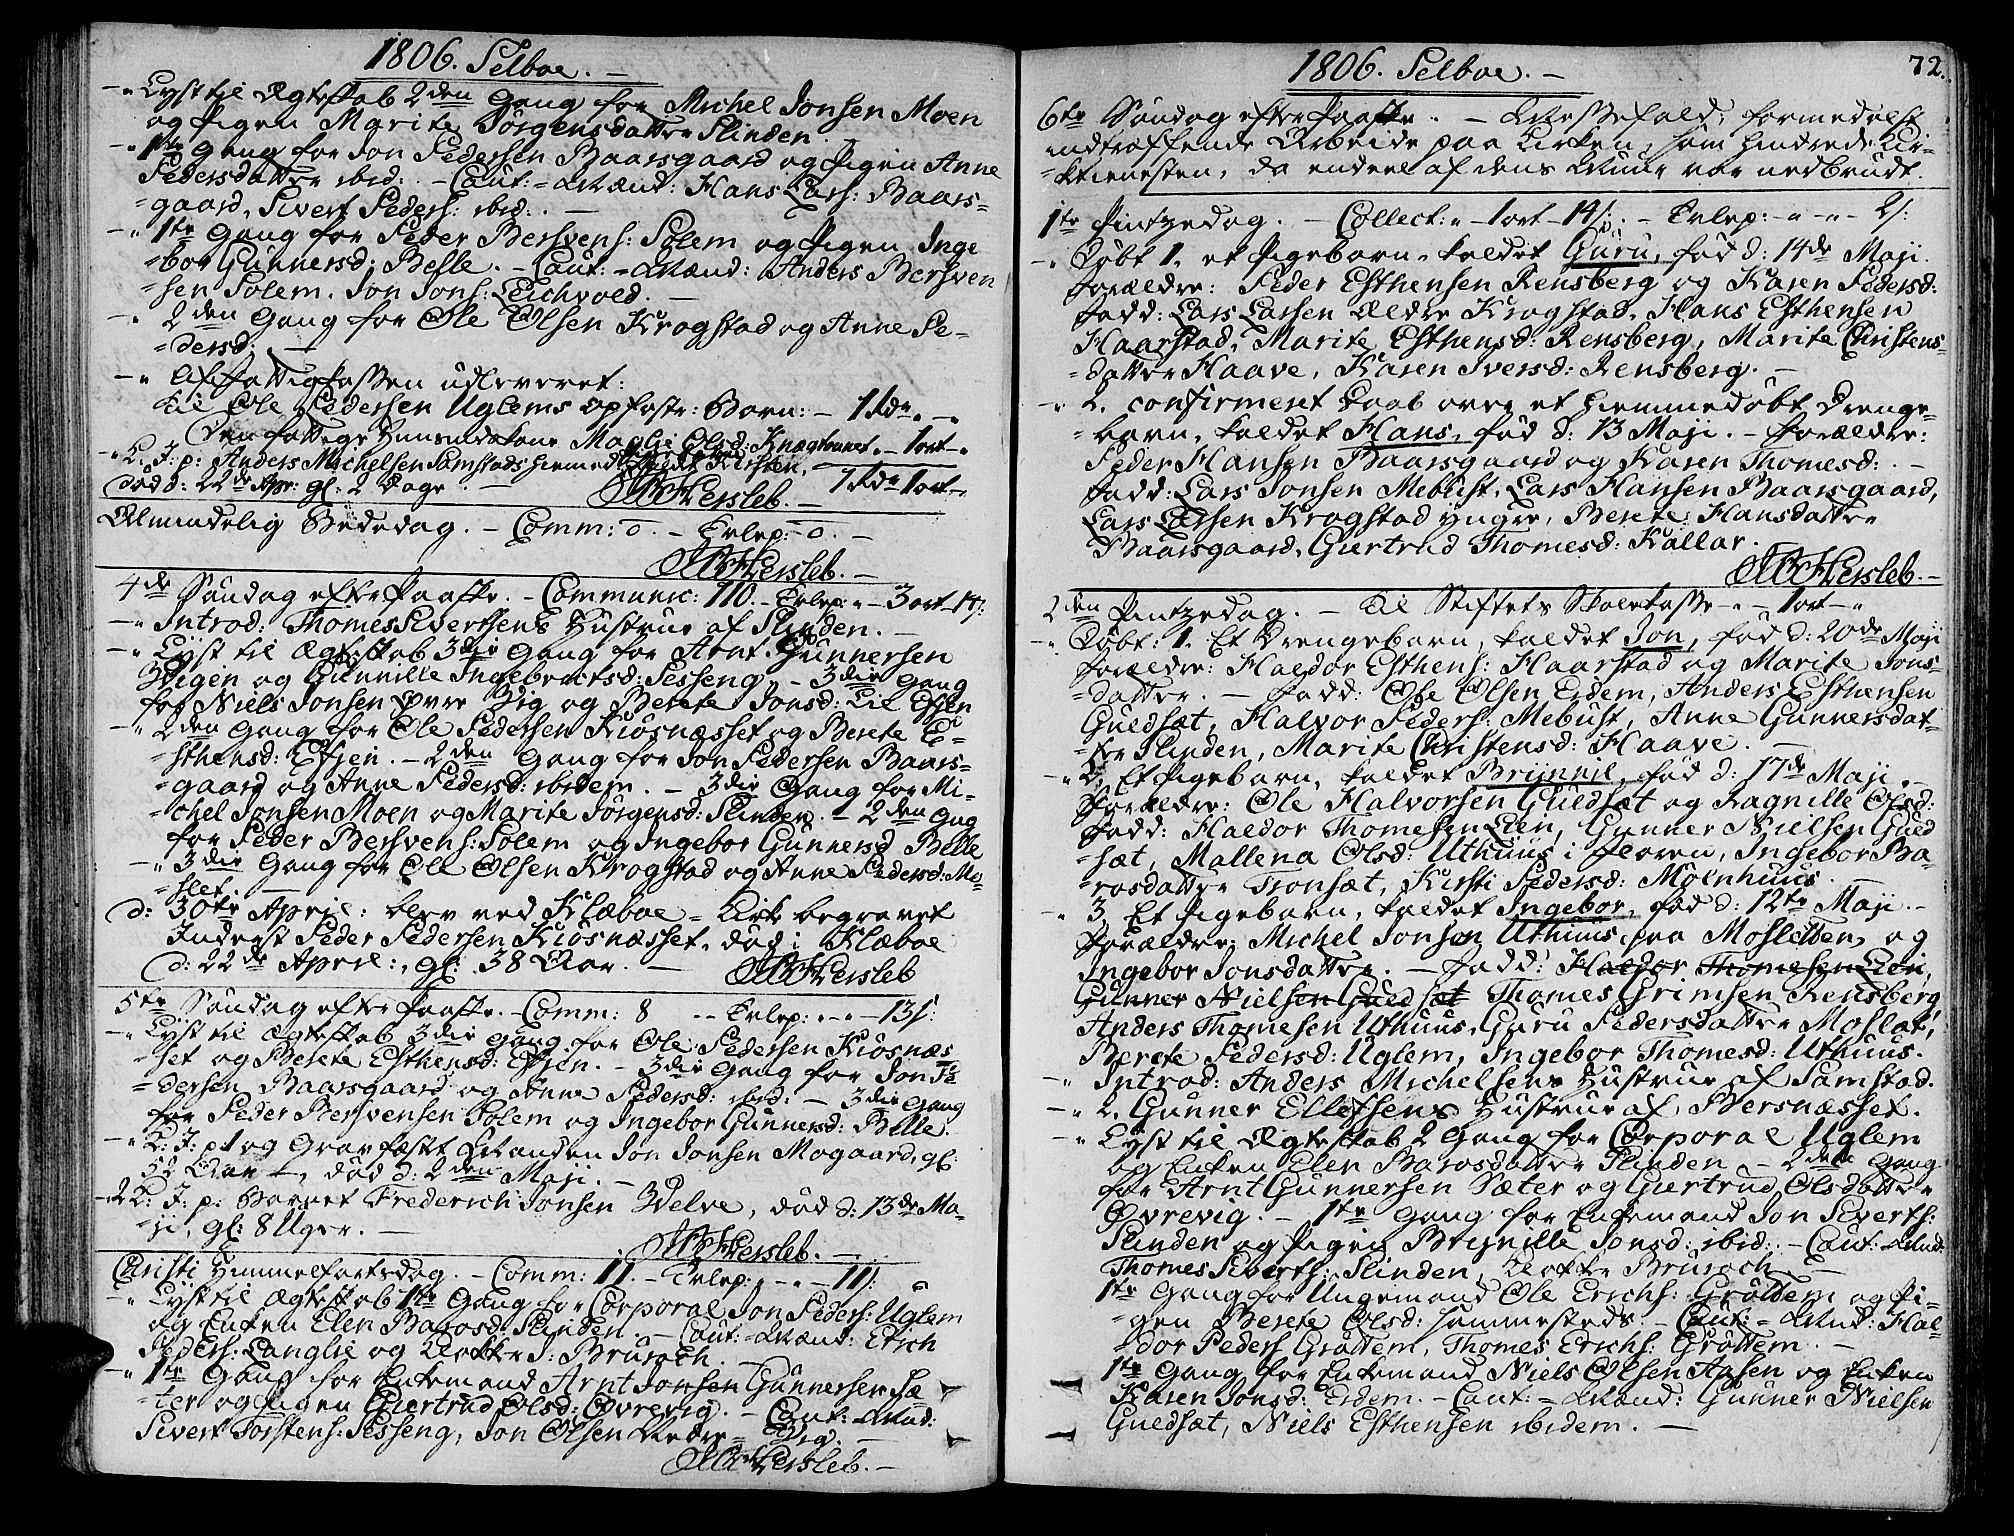 1806. Selboe. –
–„ Lyst til Ægteskab 2den Gang for Michel Jonsen Moen
og Pigen Marite Jörgensdatter Slinden.
–„ 1te Gang for Jon Pedersen Baarsgaard og Pigen Anne
Pedersdatter ibid: – Caut:=Mænd: Hans Lars: Baars-
-gaard, Sivert Peders: ibid: –
–„ 1te Gang for Peder Bersvens: Solem og Pigen Inge
-bor Gunnersd: Belle. – Caut:=Mænd: Anders Bersven
-sen Solem. Jon Jons: Eichvold. –
–„ 2den Gang for Ole Olsen Krogstad og Anne Pe-
-dersd: –
–„ Af Fattigkassen udleveret:
til Ole Pedersen Uglems opfostr: Barn: – 1 Rdr. „
Den fattige Huusmdskone Maglie Olsd: Knægtrœet. – 1 ort – „
–„ L: J: p: Anders Michelsen Samstads hiemedøbt Kirsten,
død d: 22de Apr: gl: 2 Dage. – 1 Rdr 1 ort – „
JBHersleb. –
Almindelig Bededag. – Comm: o. – Trlep: – o. –
JBHersleb. –
4de Søndag efter Paaske. – Communic: 110. – Trlep: „ – 3 ort – 14 s:
–„ Introd: Thomes Sivertsens Hustrue af Slinden. –
–„ Lyst til Ægteskab 3die Gang for Arnt Gunnersen
Wigen og Gunnille Ingebrectsd: Sesseng, – 3die Gang
for Niels Jonsen Øvre Vig og Berete Jonsd: Lil Efjen
–„ 2den Gang for Ole Pedersen Kiosnæsset og Berete E-
-sthensd: Efjen. – 2den Gang for Jon Pedersen Baars-
-gaard og Anne Pedersd: ibidem. – 3die Gang for Mi-
-chel Jonsen Moen og Marite Jörgensd: Slinden. – 2den Gang
for Peder Bersvens: Solem og Ingebor Gunnersd Belle
–„ 3die Gang for Ole Olsen Krogstad og Anne Pedersd: Mo-
-slet. –
d: 30te April: blev ved Klæboe = Kirke begravet
Inderst Peder Pedersen Kiosnæsset, død i Klæboe
d: 22de April:, gl: 38 Aar. – JBHersleb
5te Søndag efter Paaske. – Comm: 8 – Trlep: „ – 13 s:
–„ Lyst til Ægteskab 3die Gang for Ole Pedersen Kiosnæs
-set og Berete Esthensd: Efjen. – 3die Gang for Jon Pe
-dersen Baarsgaard og Anne Pedersd: ibid: – 3die Gang
for Peder Bersvensen Solem og Ingebor Gunnersd: Belle.
–„ L: J: p 1 og Gravfæstet Manden Jon Jonsen Mogaard, gl:
52 Aar –, død d: 2den Maji. –
–„ 2 L: J: p: Barnet Frederich Jonsen Welve, død d: 13de Ma-
-ji, gl: 8 Uger. –
JBHersleb. –
Christi Himmelfartsdag. – Comm: 11. – Trlep: „ – „ – 11 s:
–„ Lyst til Ægteskab 1te Gang for Corporal Jon Peders: Uglem
og Enken Elen Barosd: Slinden. – Caut:=Mænd: Erich
Peders: Langlie og Klokker J: Brusoch. –
–„ 1te Gang for Enkemand Arnt Jonsen Gunnersen Sæ
-ter og Pigen Giertrud Olsd: Øvrevig. – Caut: Mænd:
Sivert Torstens: Sesseng, Jon Olsen Nedre = Vig. –
JBHersleb. –
1806. Selboe. –
72.
6te Søndag efter Paaske. – Messefald, formedelst
indtræffende Arbeide paa Kirken, som hindrede Kir-
-ketienesten, da endeel af dens Muur var nedbrudt.
1te Pintzedag. – Collect: „ – 1 ort – 14 s: – Trlep: „ – „ – 2 s:
–„ Döbt 1. et Pigebarn, kaldet Guru, fød d: 14de Maji.
Forældre: Peder Esthensen Rensberg og Karen Pedersd:
Fadd: Lars Larsen Ældre Krogstad, Hans Esthensen
Haarstad, Marite Esthensd: Rensberg, Marite Christens-
-datter Haave, Karen Iversd: Rensberg. –
–„ 2. confirmeret Daab over et hiemmedøbt Drenge-
-barn, kaldet Hans, fød d: 13 Maji. – Forældre:
Peder Hansen Baarsgaard og Karen Thomesd: –
Fadd: Lars Jonsen Mebust, Lars Hansen Baarsgaard,
Lars Larsen Krogstad Yngre, Berete Hansdatter
Baarsgaard, Giertrud Thomesd: Kallar.
JBHersleb. –
2den Pintzedag. – Til Stiftets Skolekasse – „ – 1 ort – „
–„ Döbt: 1. Et Drengebarn, kaldet Jon, fød d: 20de Maji
Forældre: Haldor Esthens: Haarstad og Marite Jons-
-datter. – Fadd: Ole Olsen Erdem, Anders Esthensen
Guldsæt, Halvor Peders: Mebust, Anne Gunnersdat-
-ter Slinden, Marite Christensd: Haave. –
–„ 2. Et Pigebarn, kaldet Brijnnil, fød d: 17de Maji. –
Forældre: Ole Halvorsen Guldsæt og Ragnille Olsd:
Fadd: Haldor Thomesen Lien, Gunner Nielsen Guld
-sæt, Mallena Olsd: Uthuus i Floren, Ingebor Ba-
-rosdatter Tronsæt, Kirsti Pedersd: Mölnhuus. –
–„ 3. Et Pigebarn, kaldet Ingebor, fød d: 12te Maji. –
Forældre: Michel Jonson Uthuus fra Mosletten, og
Ingebor Jonsdatter. – Fadd: Haldor Thomesen Lien,
Gunner Nielsen Guldsæt Thomes Grimsen Rensberg,
Anders Thomesen Uthuus, Guru Pedersdatter Moslæt,
Berete Pedersd: Uglem, Ingebor Thomesd: Uthuus.
–„ Introd: Anders Michelsens Hustrue af Samstad.
–„ 2. Gunner Ellefsens Hustrue af Bersnæsset.
–„ Lyst til Ægteskab 2 Gang for Corporal Uglem
og Enken Elen Barosdatter Slinden – 2den Gang
for Arnt Gunnersen Sæter og Giertrud Olsdatter
Øvrevig. – 1te Gang for Enkemand Jon Siverts:
Slinden og Pigen Brijnille Jonsd: ibid: – Caut: Mnd:
Thomes Siverts: Slinden, Klokker Brusoch. –
1te Gang for Ungemand Ole Erichs: Gröttem og Pi-
-gen Berete Olsd: Hommesteds. – Caut: = Mnd: Hal-
-dor Peders Gröttem, Thomes Erichs: Gröttem. –
1te Gang for Enkemand Niels Olsen Aasen og Enken
Karen Jonsd: Erdem. – Caut: = Mænd: Gunner Nielsen
Guldsæt, Niels Esthensen ibidem. –